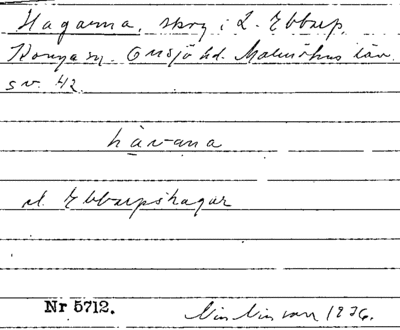 Hagarna, skog i L. Ebbarp,
Konga sn. Onsjö hd. Malmöhus län.
s v. 42
hạ̄v-ana
el. Ebbarpshagar
Nr 5712.
1936.